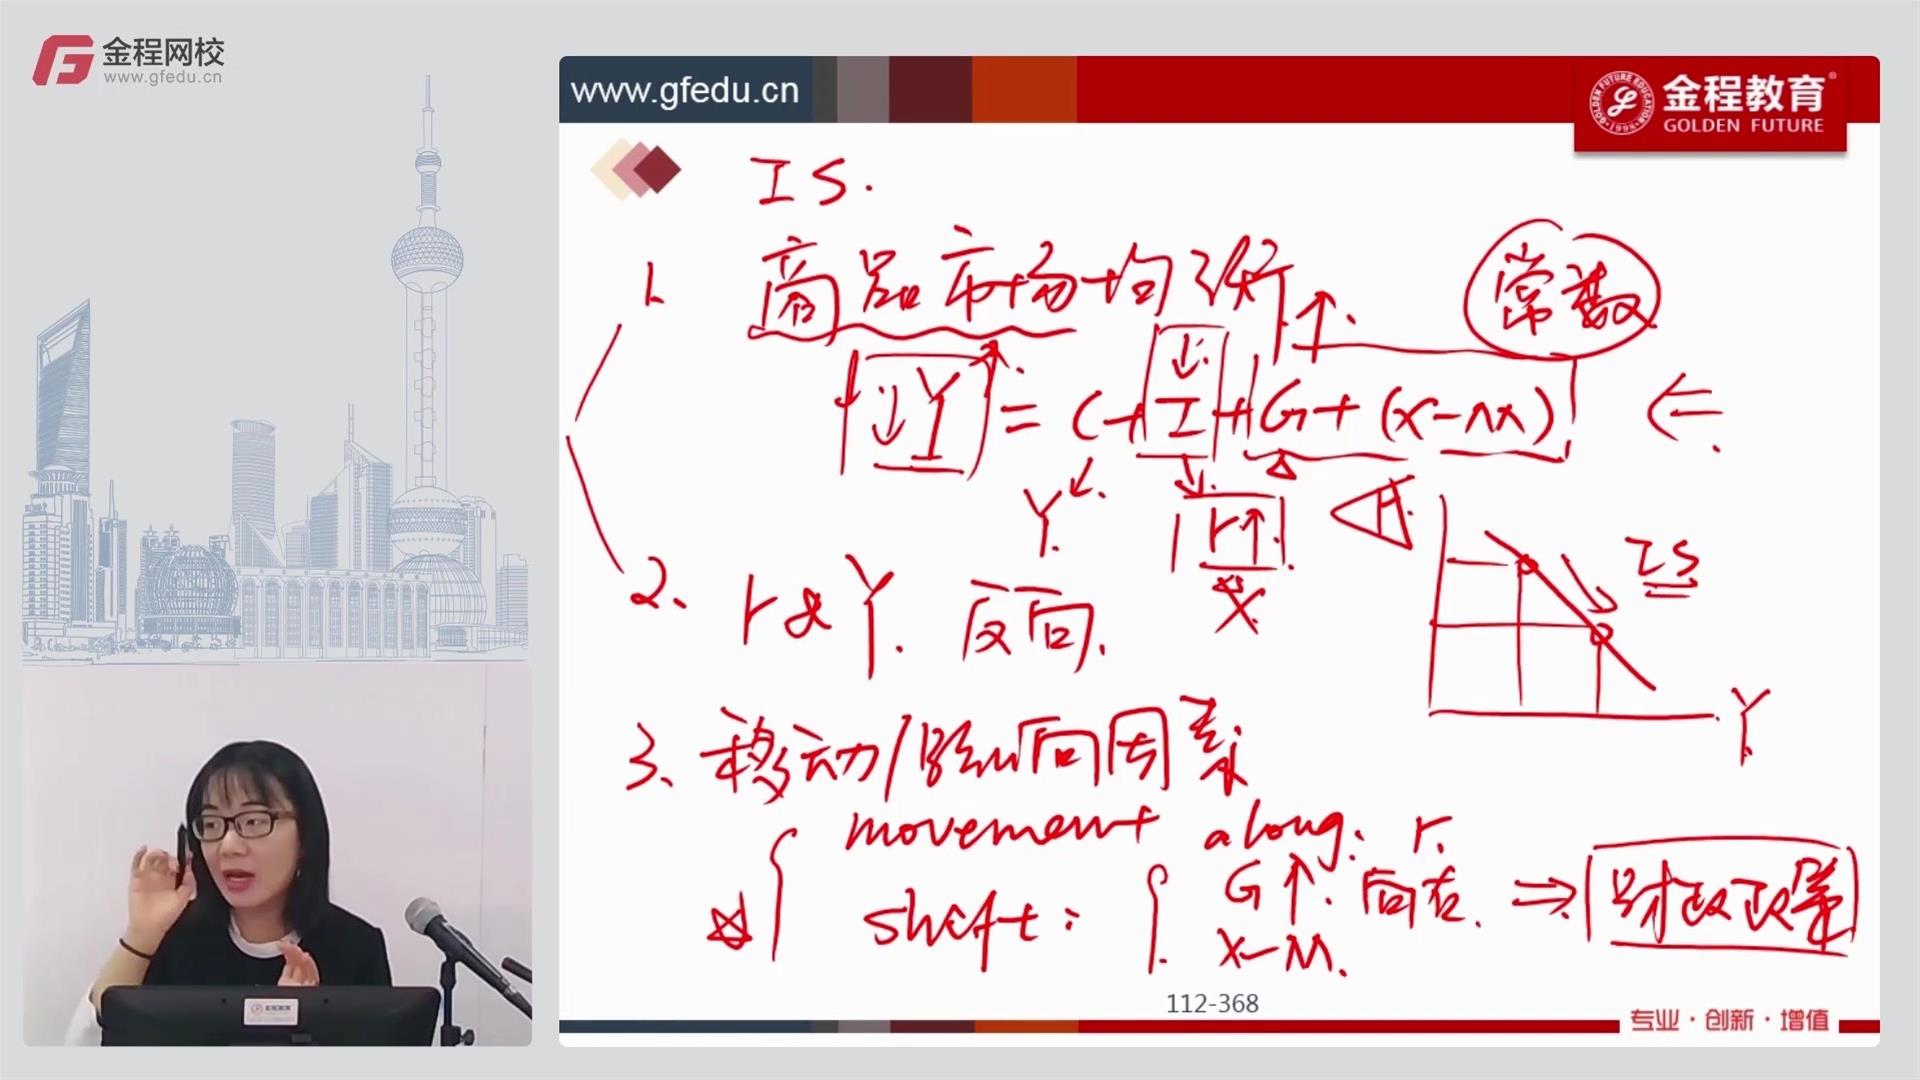 金程网校
www.gfedu.cn
www.gfedu.cn
金程教育
GOLDEN FUTURE
IS.
1. 商品市场均衡
常数
↓Y = C + I + G + (X-M) ↑
Y
r↑
X
2. r & Y. 反向.
IS
Y
3. 移动/影响因素
movement along. r.
shift: G↑. 向右. ⇒ 财政政策
X-M.
112-368
专业·创新·增值